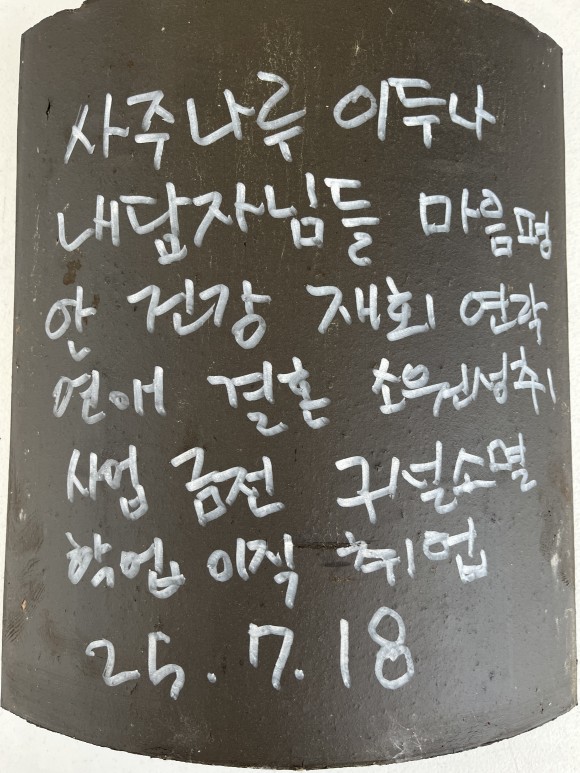 사주나루 이두나
내담자님들 마음평
안 건강 재회 연락
연애 결혼 소원성취
사업 금전 구설소멸
학업 이직 취업
25.7.18